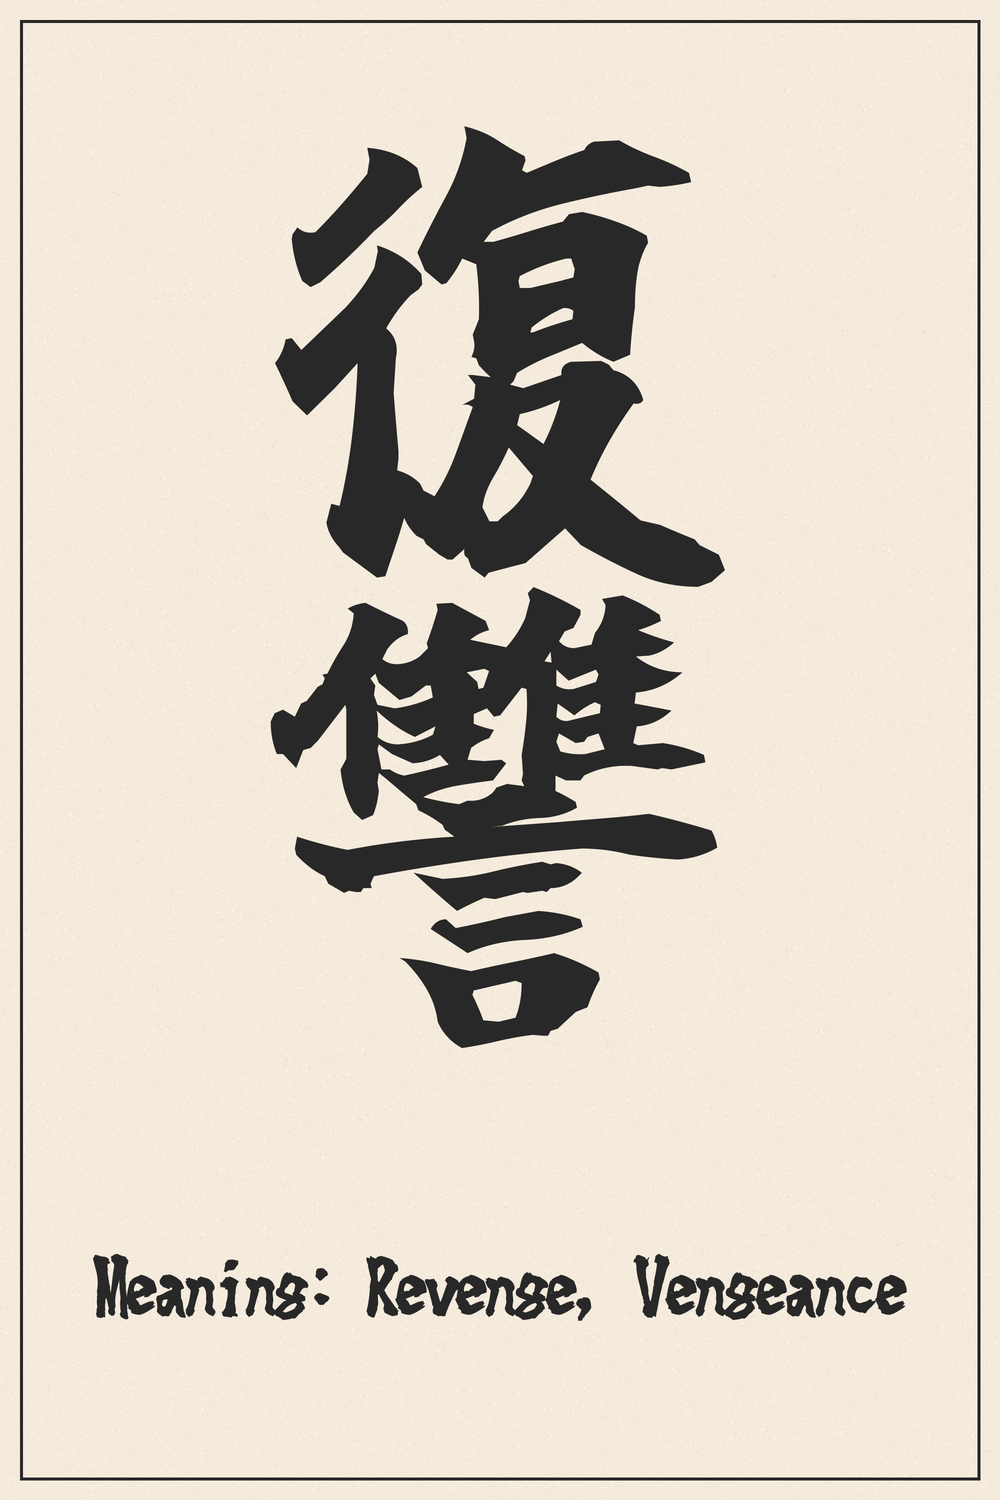 復讐
Meaning: Revenge, Vengeance